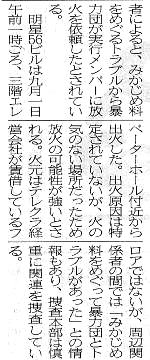 者によると、みかじめ料
をめぐるトラブルから暴
力団が実行メンバーに放
火を依頼したとされてい
る。
明星56ビルは九月一日
午前一時ごろ、三階エレ
ベーターホール付近から
出火した。出火原因は特
定されていないが、火の
気のない場所だったため
放火の可能性が強いとさ
れる。火元はテレクラ経
営会社が賃借しているフ
ロアではないが、周辺関
係者の間では「みかじめ
料をめぐって暴力団とト
ラブルがあった」との情
報もあり、捜査本部は慎
重に関連を捜査してい
る。